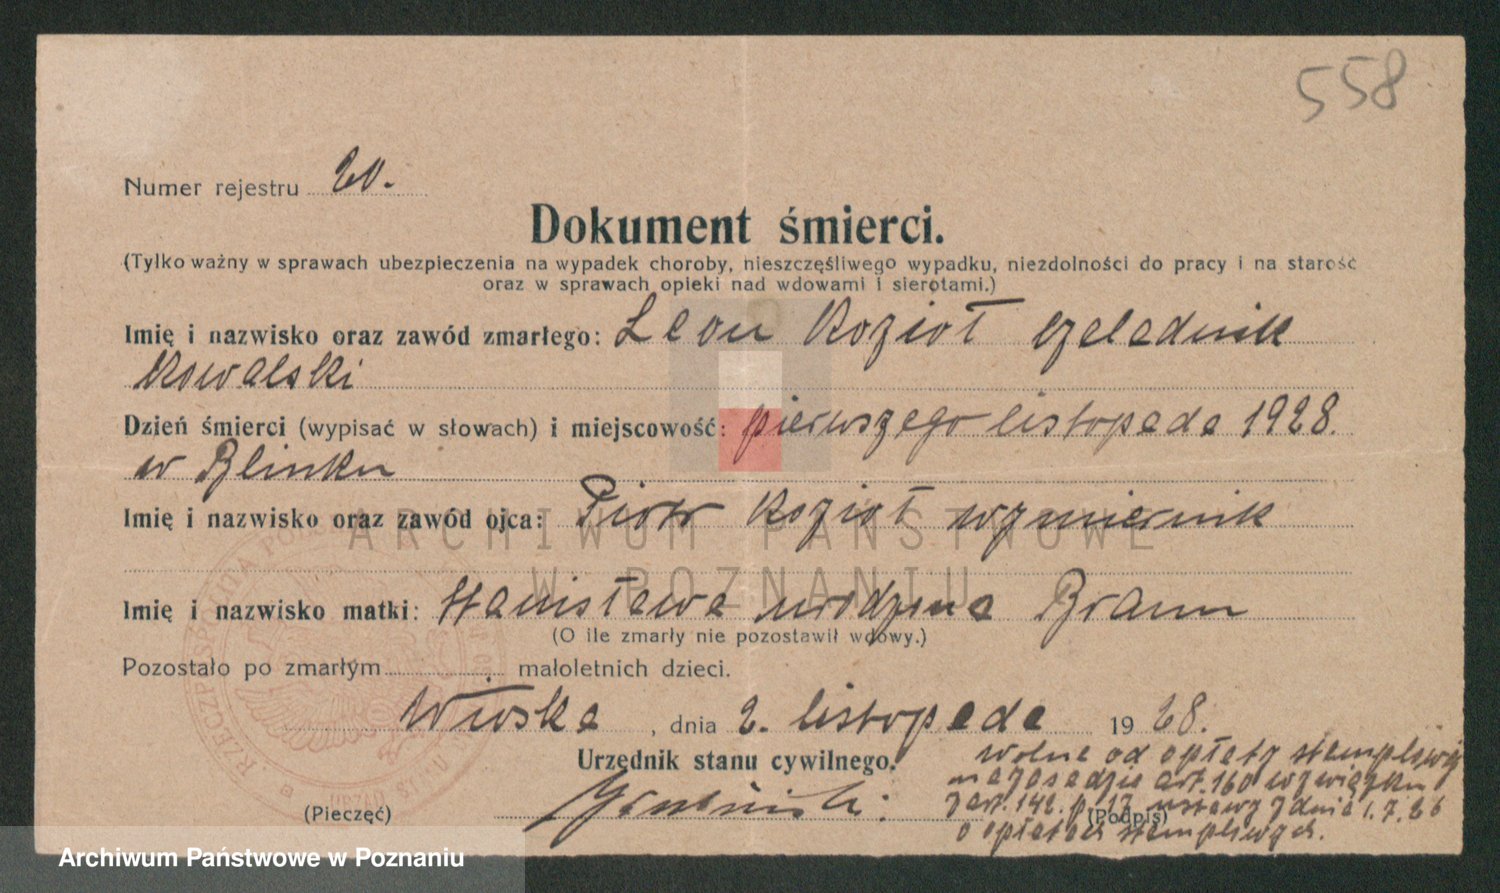 558
Numer rejestru 20.
Dokument śmierci.
(Tylko ważny w sprawach ubezpieczenia na wypadek choroby, nieszczęśliwego wypadku, niezdolności do pracy i na starość
oraz w sprawach opieki nad wdowami i sierotami.)
Imię i nazwisko oraz zawód zmarłego: Leon Kozioł czeladnik
kowalski
Dzień śmierci (wypisać w słowach) i miejscowość: pierwszego listopada 1928.
w Blinku
Imię i nazwisko oraz zawód ojca: Piotr Kozioł wymiernik
ARCHIWUM PAŃSTWOWE
W POZNANIU
Imię i nazwisko matki: Stanisława urodzona Braun
(O ile zmarły nie pozostawił wdowy.)
Pozostało po zmarłym małoletnich dzieci.
Wioska, dnia 2. listopada 1928.
Urzędnik stanu cywilnego.
wolne od opłaty stemplowej
na zasadzie art. 160 w związku
z art. 142. p. 17 ustawy z dnia 1.7.26
o opłatach stemplowych.
(Pieczęć)
(Podpis)
RZECZPOSPOLITA POLSKA
Archiwum Państwowe w Poznaniu